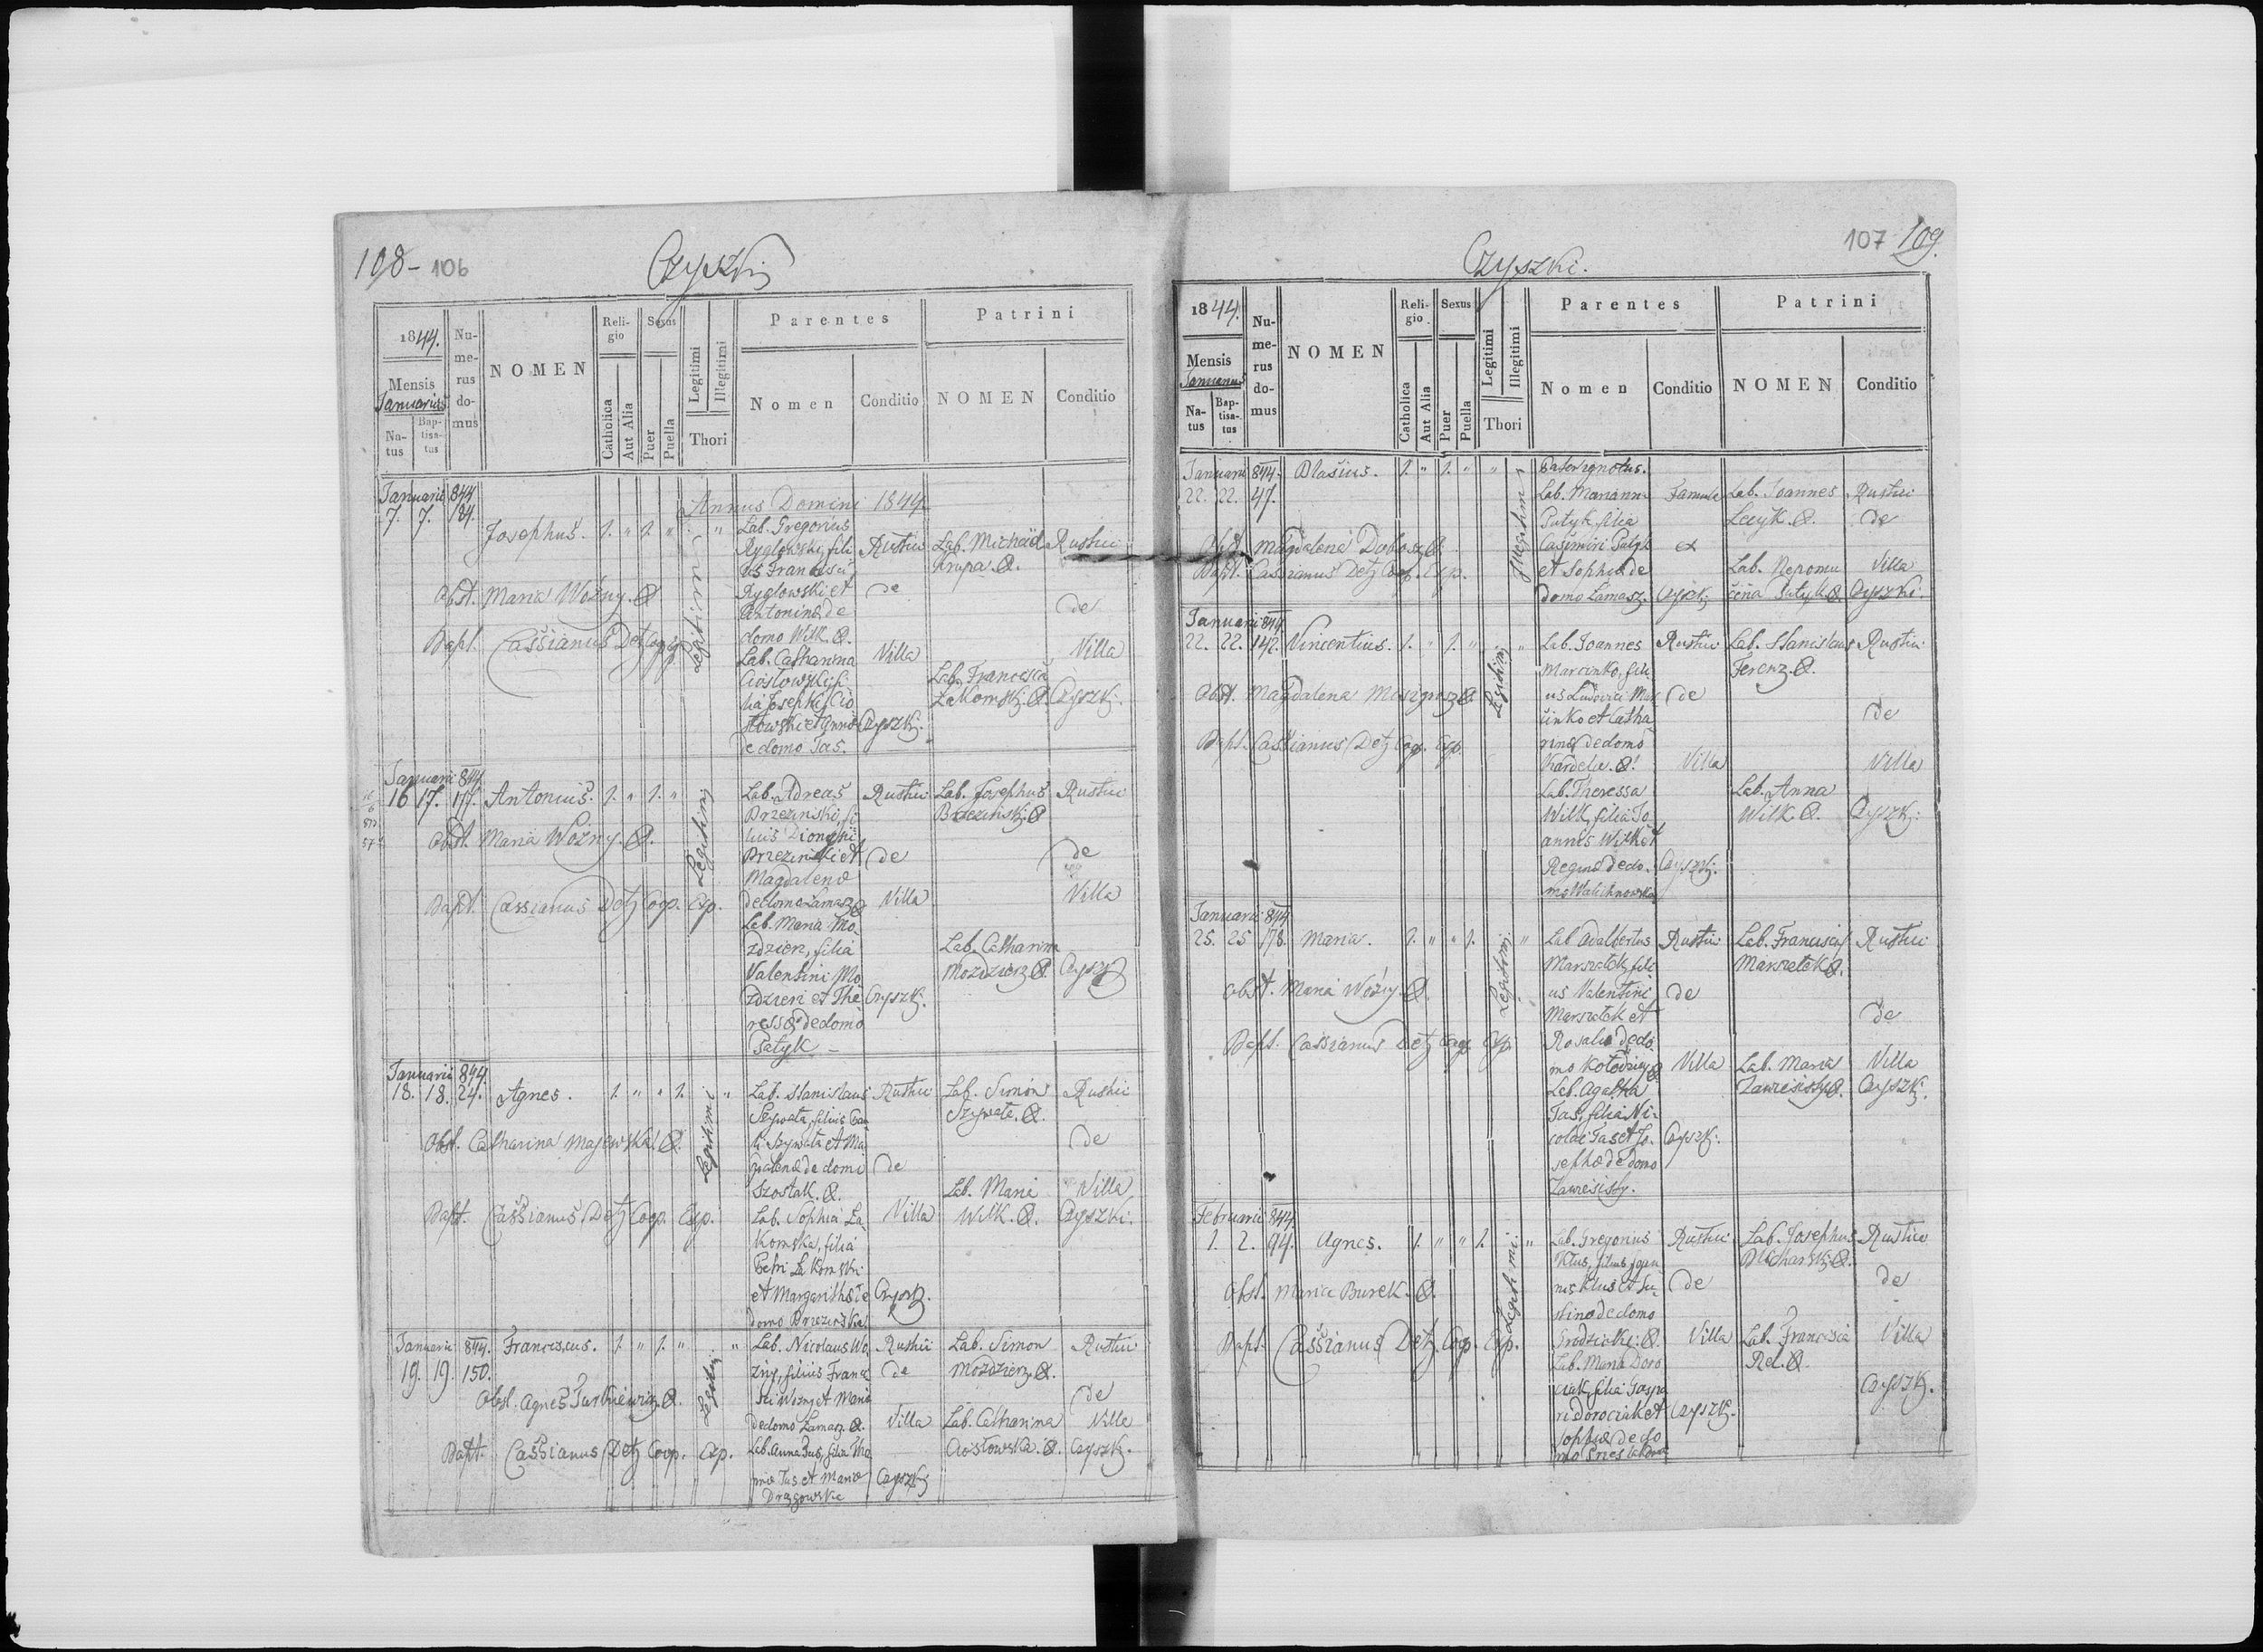 108 - 106
Czyszki
1844.
Mensis
Januarius
Na-
tus
Bap-
tisa-
tus
Nu-
me-
rus
do-
mus
NOMEN
Reli-
gio
Catholica
Aut Alia
Sexus
Puer
Puella
Legitimi
Illegitimi
Thori
Parentes
Nomen
Conditio
Patrini
NOMEN
Conditio
Annus Domini 1844.
Januarii 844
7. 7. 184.
Josephus. 1. " 1. " "
Obst. Maria Woźny. X
Bapt. Cassianus Detz Coop. Exp.
Legitimi
Lab. Gregorius
Ryglowski, fili
us Francisci
Ryglowski et
Antoninæ de
domo Wilk. X.
Lab. Catharina
Ciosłowski, fi
lia Josephi Cio
słowski et Annæ
de domo Tas.
Rustici
de
Villa
Czyszki.
Lab. Michael
Krupa. X.
Lab. Francisca
Łakomsk. X.
Rustici
de
Villa
Czyszki.
Januarii 844.
16 17. 177. Antonius. 1. " 1. "
Obst. Maria Woźny. X.
Bapt. Cassianus Detz Coop. Exp.
Legitimi
Lab. Adreas
Brzezinski, fi
lius Dionysii
Brzezinski et
Magdalenæ
de domo Łamasz X
Lab. Maria Mo-
zdzierz, filia
Valentini Mo
zdzierz et The
ressæ de domo
Patyk -
Rustici
de
Villa
Czyszki.
Lab. Josephus
Brzezinski. X
Lab. Catharina
Mozdzierz X.
Rustici
de
Villa
Czyszki
Januarii 844.
18. 18. 24. Agnes. 1. " " 1. "
Obst. Catharina Majewska. X.
Bapt. Cassianus Detz Coop. Exp.
Legitimi
Lab. Stanislaus
Szywała, filius
li Szywała et Ma
gdalenæ de domo
Szostak. X.
Lab. Sophia Ła-
komska, filia
Petri Łakomski
et Margarithæ de
domo Brzezinska
Rustici
de
Villa
Czyszki.
Lab. Simon
Szywała. X.
Lab. Maria
Wilk. X.
Rustici
de
Villa
Czyszki.
Januarii 844.
19. 19. 150. Franciscus. 1. " 1. " "
Obst. Agnes Jurkiewicz X.
Bapt. Cassianus Detz Coop. Exp.
Legitimi
Lab. Nicolaus Wo
zny, filius Franci
sci Wozny et Mariæ
de domo Łamasz. X.
Lab. Anna Tus, filia
Tus et Mariæ
Rustici
de
Villa
Czyszki
Lab. Simon
Mozdzierz. X.
Lab. Catharina
Ciosłowska. X.
Rustici
de
Villa
Czyszki.
107 109.
Czyszki.
1844.
Mensis
Januarius
Na-
tus
Bap-
tisa-
tus
Nu-
me-
rus
do-
mus
NOMEN
Reli-
gio
Catholica
Aut Alia
Sexus
Puer
Puella
Legitimi
Illegitimi
Thori
Parentes
Nomen
Conditio
Patrini
NOMEN
Conditio
Januarii 844.
22. 22. 47. Blasius. 1. " 1. " "
Obst. Magdalena Dobosz X.
Bapt. Cassianus Detz Coop. Exp.
Illegitimi
Pater ignotus.
Lab. Mariann
Patyk filia
Casimiri Patyk
et Sophiæ de
domo Łamasz.
Famula
ex
Czyszki
Lab. Joannes
Lecyk. X.
Lab. Nepomu
cena Patyk X.
Rustici
de
Villa
Czyszki.
Januarii 844
22. 22. 142. Vincentius. 1. " 1. " "
Bapt. Cassianus Detz Coop. Exp.
Legitimi
Lab. Joannes
Marcinko, fili
us Ludovici Mar
cinko et Catha
rinæ de domo
Kardela. X.
Lab. Theressa
Wilk, filia Jo
annes Wilk et
Reginæ de do-
mo Walichnowska
Rustici
de
Villa
Czyszki.
Lab. Stanislaus
Ferenz. X.
Lab. Anna
Wilk. X.
Rustici
de
Villa
Czyszki.
Januarii 844
25. 25 178. Maria. 1. " " 1. "
Obst. Maria Woźny. X.
Bapt. Cassianus Detz Coop. Exp.
Legitimi.
Lab Adalbertus
Marszałek, fili
us Valentini
Marszałek et
Rosaliæ de do
mo Kołodziey X
Lab. Agatha
Tas, filia Ni-
colai Tas et Jo-
sephæ de domo
Rustici
de
Villa
Czyszki.
Lab. Franciscus
Marszałek X.
Lab. Maria
Rustici
de
Villa
Czyszki.
Februarii 844.
1. 2. 94. Agnes. 1. " " 1. "
Obst. Maria Burek. X.
Bapt. Cassianus Detz. Coop. Exp.
Legitimi.
Lab. Gregorius
Klus, filius Joan
nis Klus et Ju-
stinæ de domo
Grodzicki. X.
Lab. Maria Doro
ciak, filia Gaspa
ri Dorociak et
Sophiæ de do
mo
Rustici
de
Villa
Czyszki.
Lab. Josephus
Lab. Francisca
Rel. X.
Rustici
de
Villa
Czyszki.